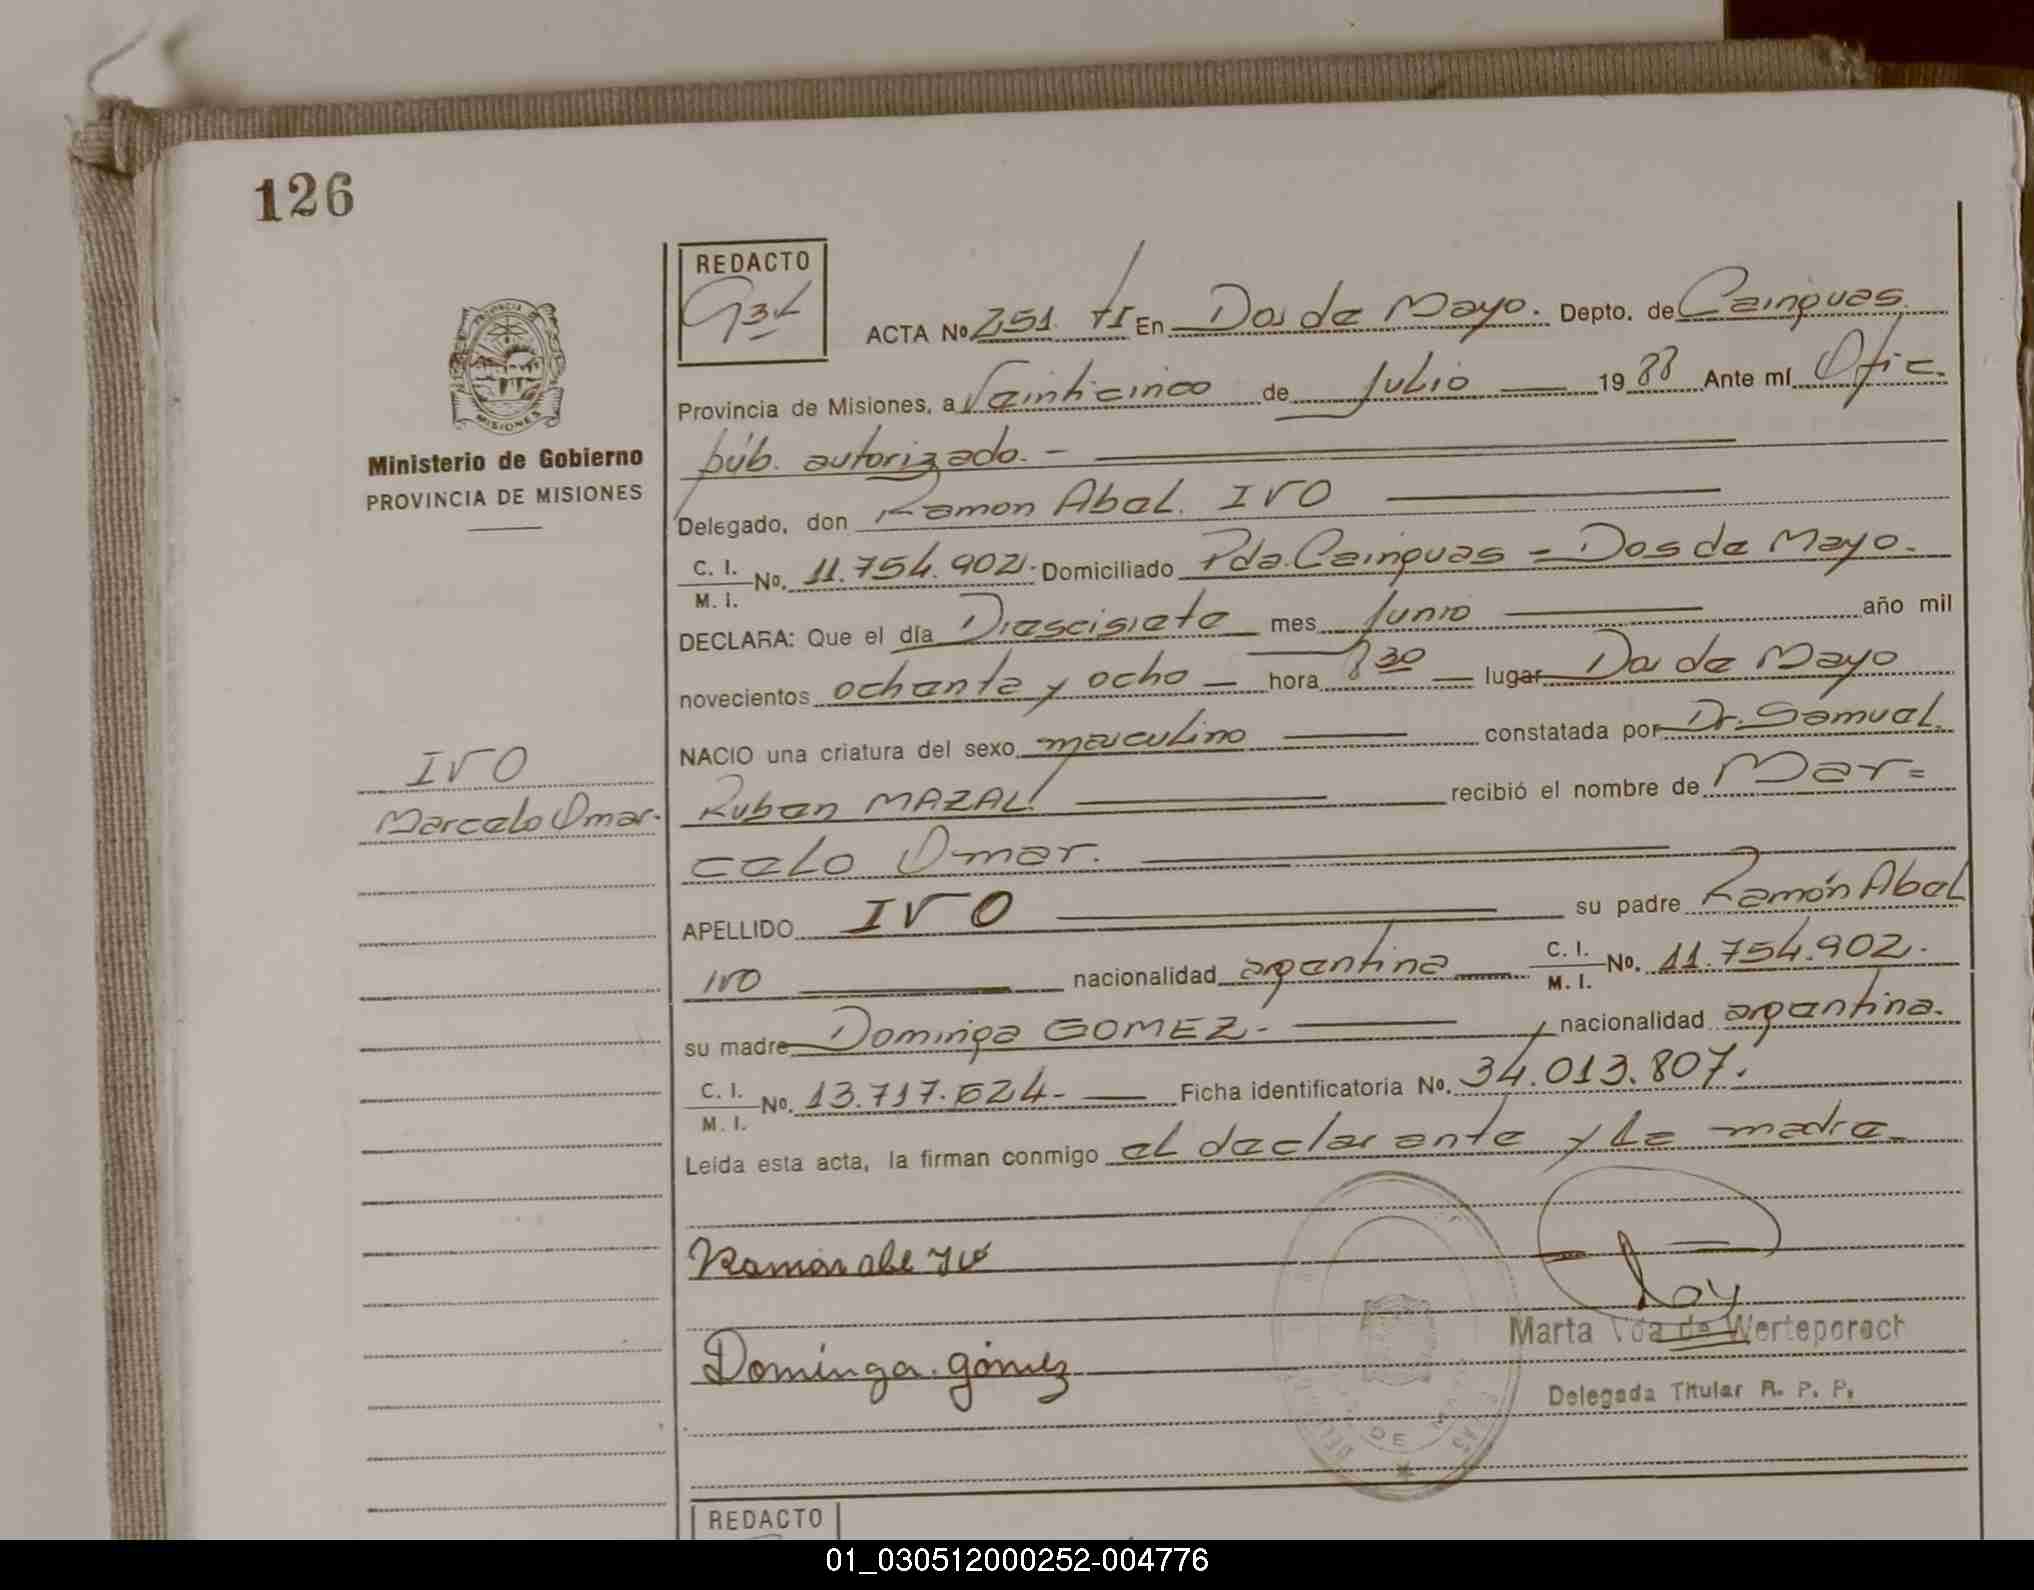 126
REDACTO
ACTA No. 251. tI En Dos de Mayo. Depto. de Cainguas.
Provincia de Misiones, a Veinticinco de Julio 19 88 Ante mí Ofic.
púb. autorizado. -
Ministerio de Gobierno
PROVINCIA DE MISIONES
Delegado, don Ramon Abel. IVO
C. I. M. I. No. 11.754.902. Domiciliado Pda. Cainguas = Dos de Mayo.
DECLARA: Que el día Diescisiete mes Junio año mil
novecientos ochenta y ocho hora 8 30 lugar Dos de Mayo
NACIO una criatura del sexo masculino constatada por Dr. Samuel.
Ruben MAZAL. recibió el nombre de Mar=
celo Omar.
IVO
Marcelo Omar.
APELLIDO IVO su padre Ramón Abel
IVO nacionalidad argentina C. I. M. I. No. 11.754.902.
su madre Dominga GOMEZ. nacionalidad argentina.
C. I. M. I. No. 13.717.624. Ficha identificatoria No. 34.013.807.
Leída esta acta, la firman conmigo el declarante y la madre
Ramón abel Ivo
Dominga. gómez
Marta Vda de Werteporoch
Delegada Titular R. P. P.
DE
REDACTO
01_030512000252-004776